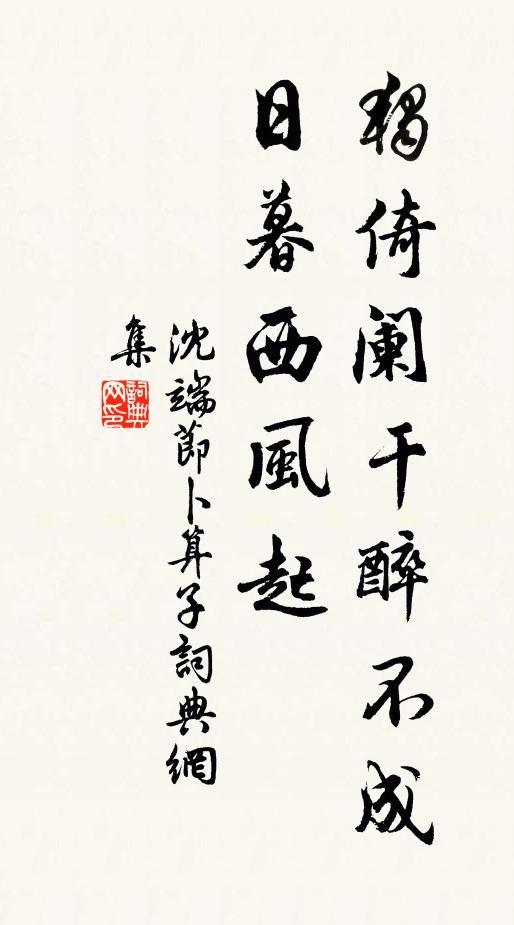 獨倚闌干醉不成
日暮西風起
沈端節卜算子詞典網
集
詞典网印